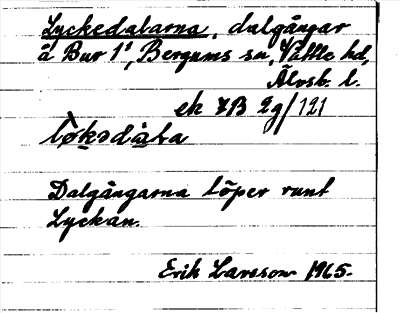 Lyckedalarna, dalgångar
å Bur 1¹, Bergums sn, Vättle hd,
Älvsb. l.
ek 7B 2g/121
Dalgångarna löper runt
Lyckan.
Erik Larsson 1965.